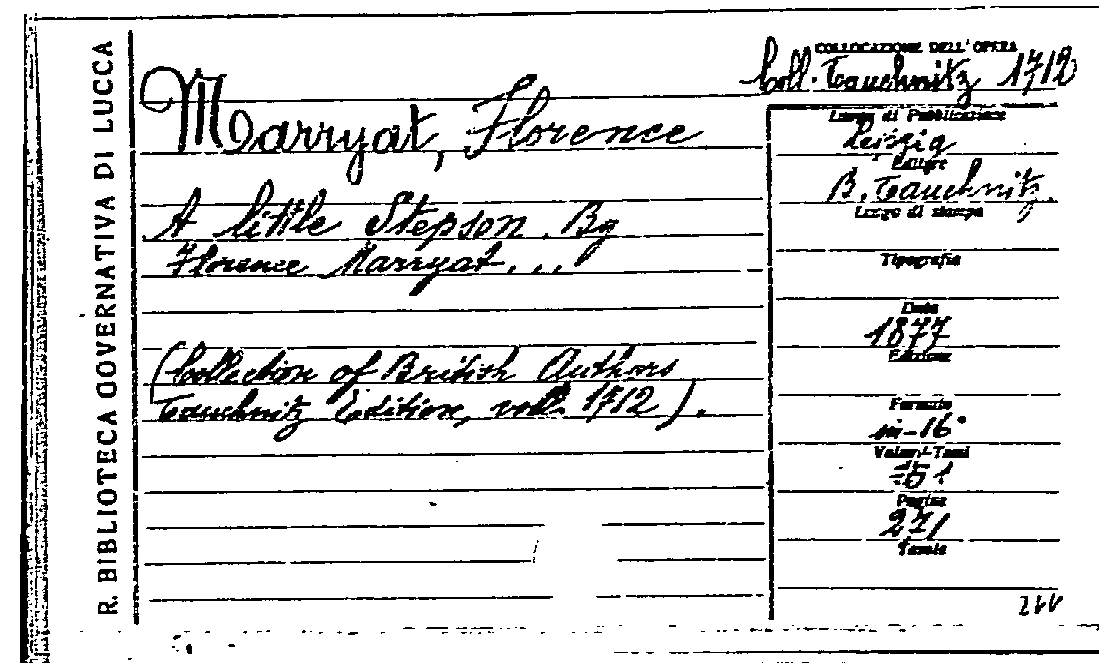 R. BIBLIOTECA GOVERNATIVA DI LUCCA
Marryat, Florence
A little Stepson. By
Florence Marryat...
(Collection of British Authors
Tauchnitz Edition, vol. 1712).
COLLOCAZIONE DELL'OPERA
Coll. Tauchnitz 1712
Luogo di Pubblicazione
Leipzig
Editore
B. Tauchnitz.
Luogo di stampa
Tipografia
Data
1877
Edizione
Formato
in-16°
Volumi-Tomi
1
Pagine
271
Tavole